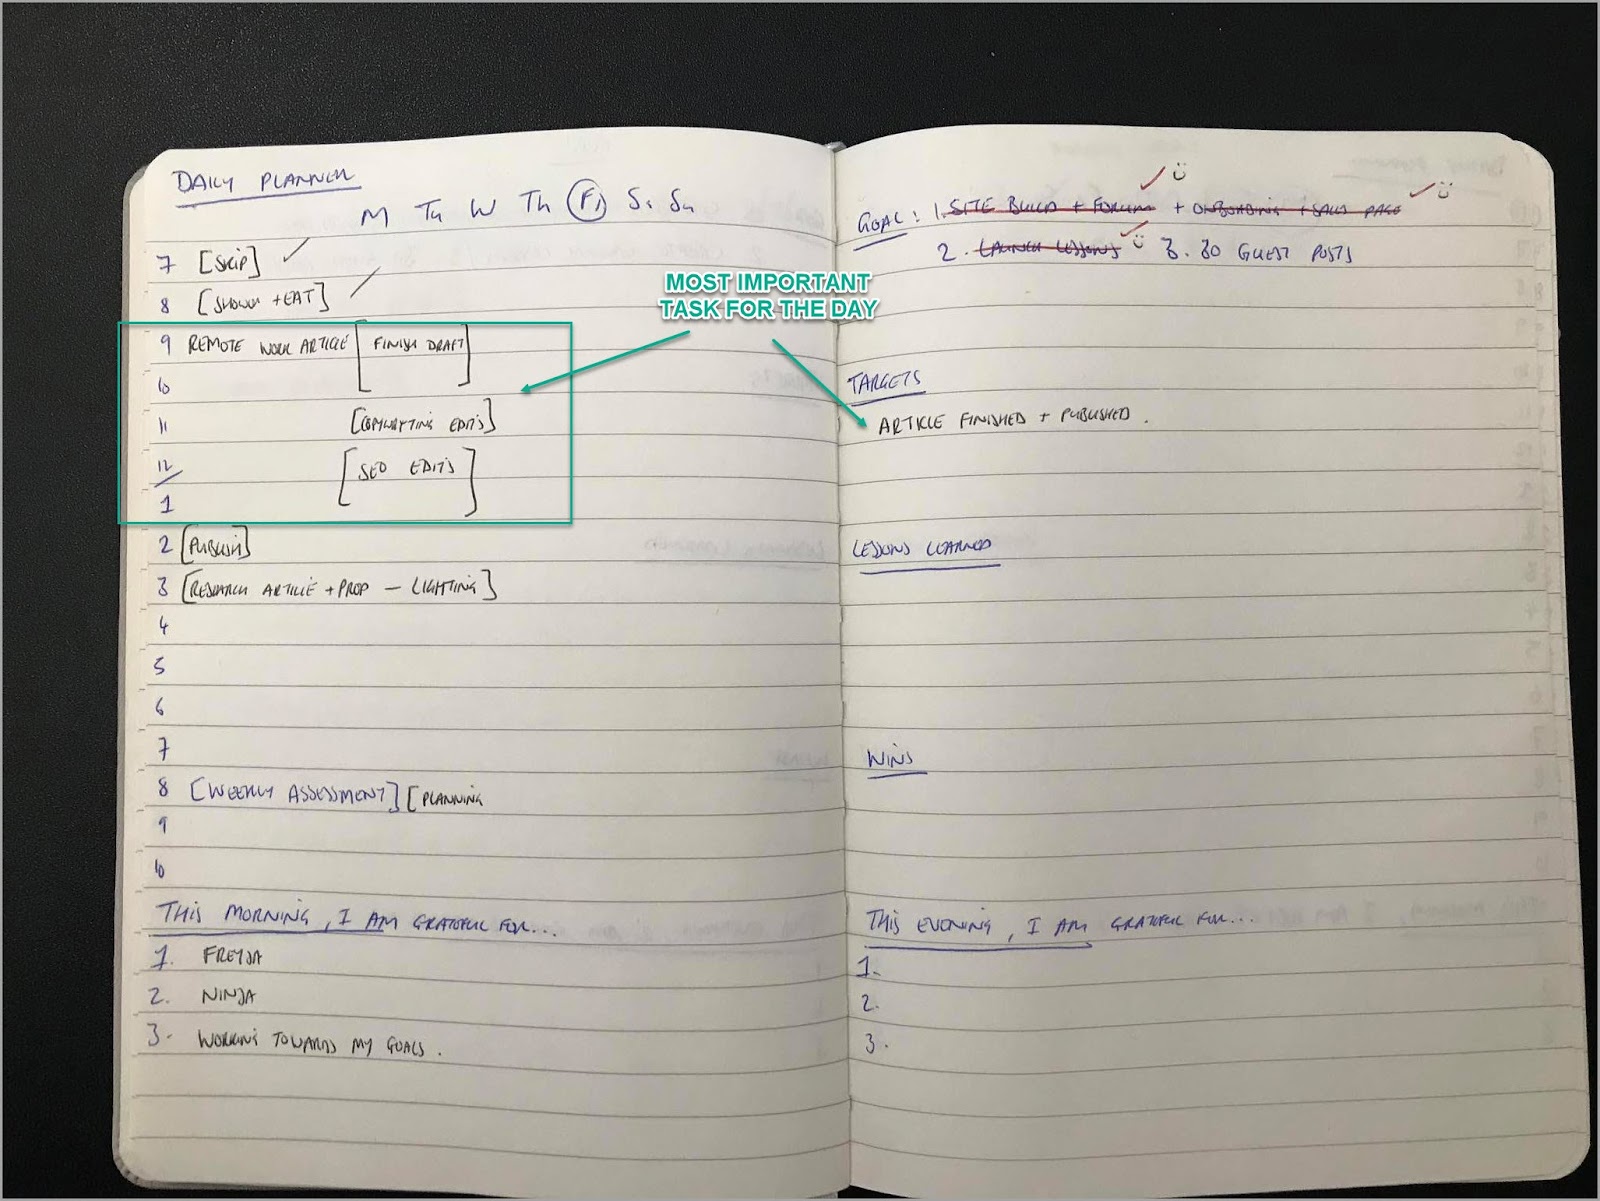 DAILY PLANNER
M Tu W Th Fi Sa Su
7 [SKIP]
8 [SHOWER + EAT]
9 REMOTE WORK ARTICLE [FINISH DRAFT]
10
11 [COPYWRITING EDITS]
12 [SEO EDITS]
1
2 [PUBLISH]
3 [RESEARCH ARTICLE + PROP — LIGHTING]
4
5
6
7
8 [WEEKLY ASSESSMENT] [PLANNING
9
10
THIS MORNING, I AM GRATEFUL FOR...
1. FREYJA
2. NINJA
3. WORKING TOWARDS MY GOALS.
MOST IMPORTANT
TASK FOR THE DAY
GOAL: 1. SITE BUILD + FORUM + ONBOARDING + SALES PAGE
2. LAUNCH LESSONS 3. 30 GUEST POSTS
TARGETS
ARTICLE FINISHED + PUBLISHED.
LESSONS LEARNED
WINS
THIS EVENING, I AM GRATEFUL FOR...
1.
2.
3.